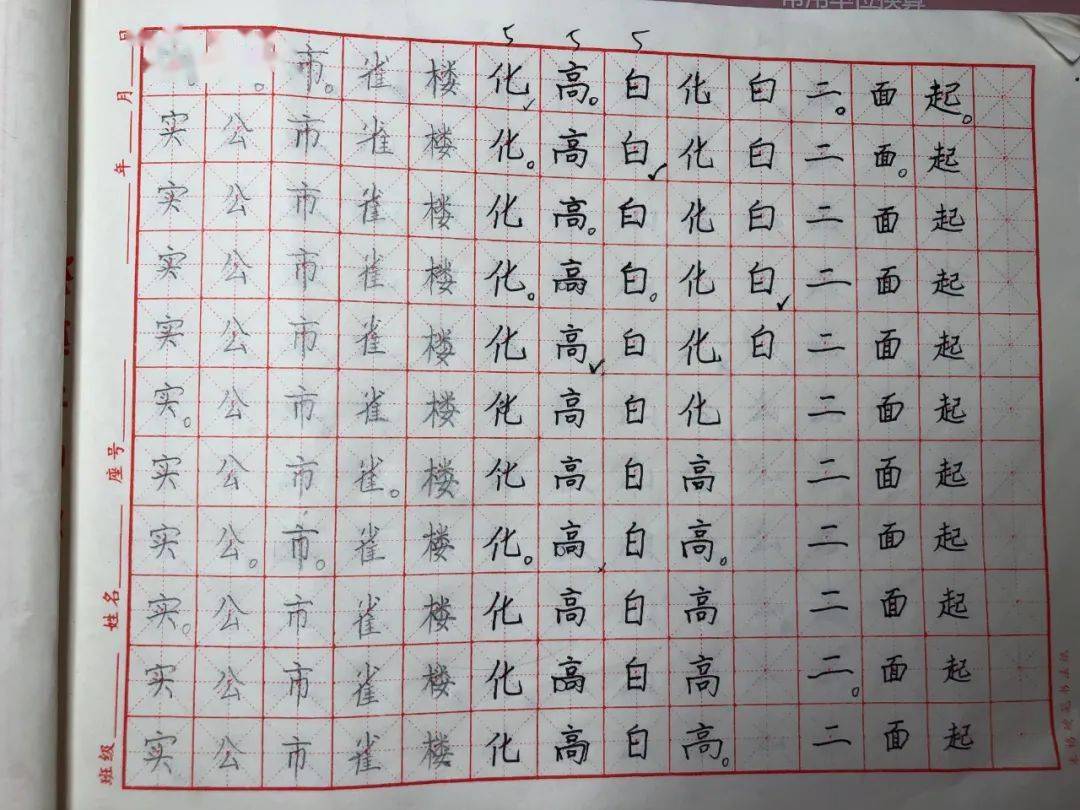 常用单位换算
5 5 5
市雀楼化高白化白二面起
实公市雀楼化高白化白二面起
实公市雀楼化高白化白二面起
实公市雀楼化高白化白二面起
实公市雀楼化高白化白二面起
实公市雀楼化高白化二面起
实公市雀楼化高白高二面起
实公市雀楼化高白高二面起
实公市雀楼化高白高二面起
实公市雀楼化高白高二面起
实公市雀楼化高白高二面起
班级 姓名 座号 年 月 日